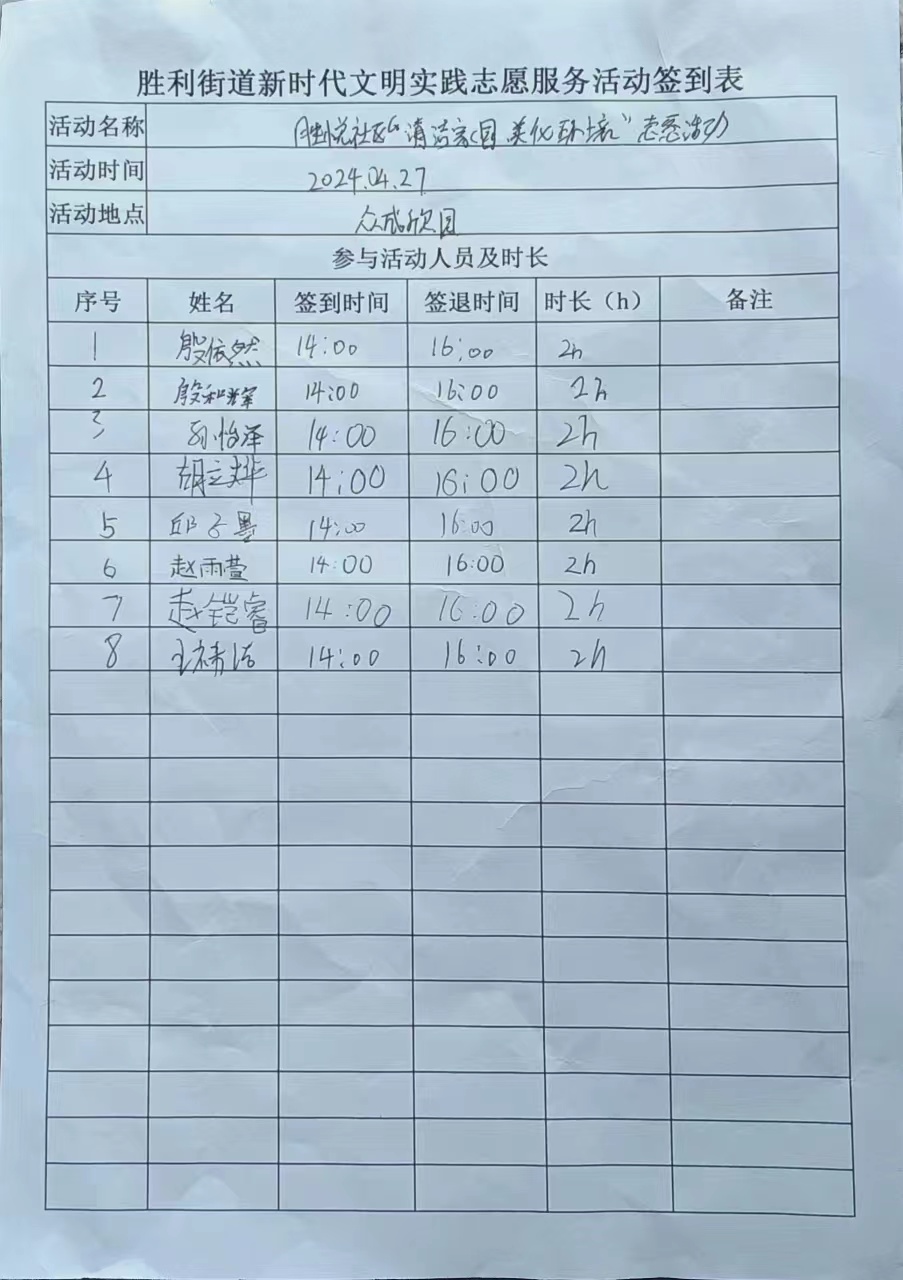 胜利街道新时代文明实践志愿服务活动签到表
活动名称 胜悦社区“清洁家园 美化环境”志愿活动
活动时间 2024.04.27
活动地点 众成欣园
参与活动人员及时长
序号 姓名 签到时间 签退时间 时长（h） 备注
1 殷依然 14:00 16:00 2h
2 殷和辉 14:00 16:00 2h
3 孙怡泽 14:00 16:00 2h
4 胡立烨 14:00 16:00 2h
5 邱子墨 14:00 16:00 2h
6 赵雨萱 14:00 16:00 2h
7 赵铠睿 14:00 16:00 2h
8 王禧 14:00 16:00 2h